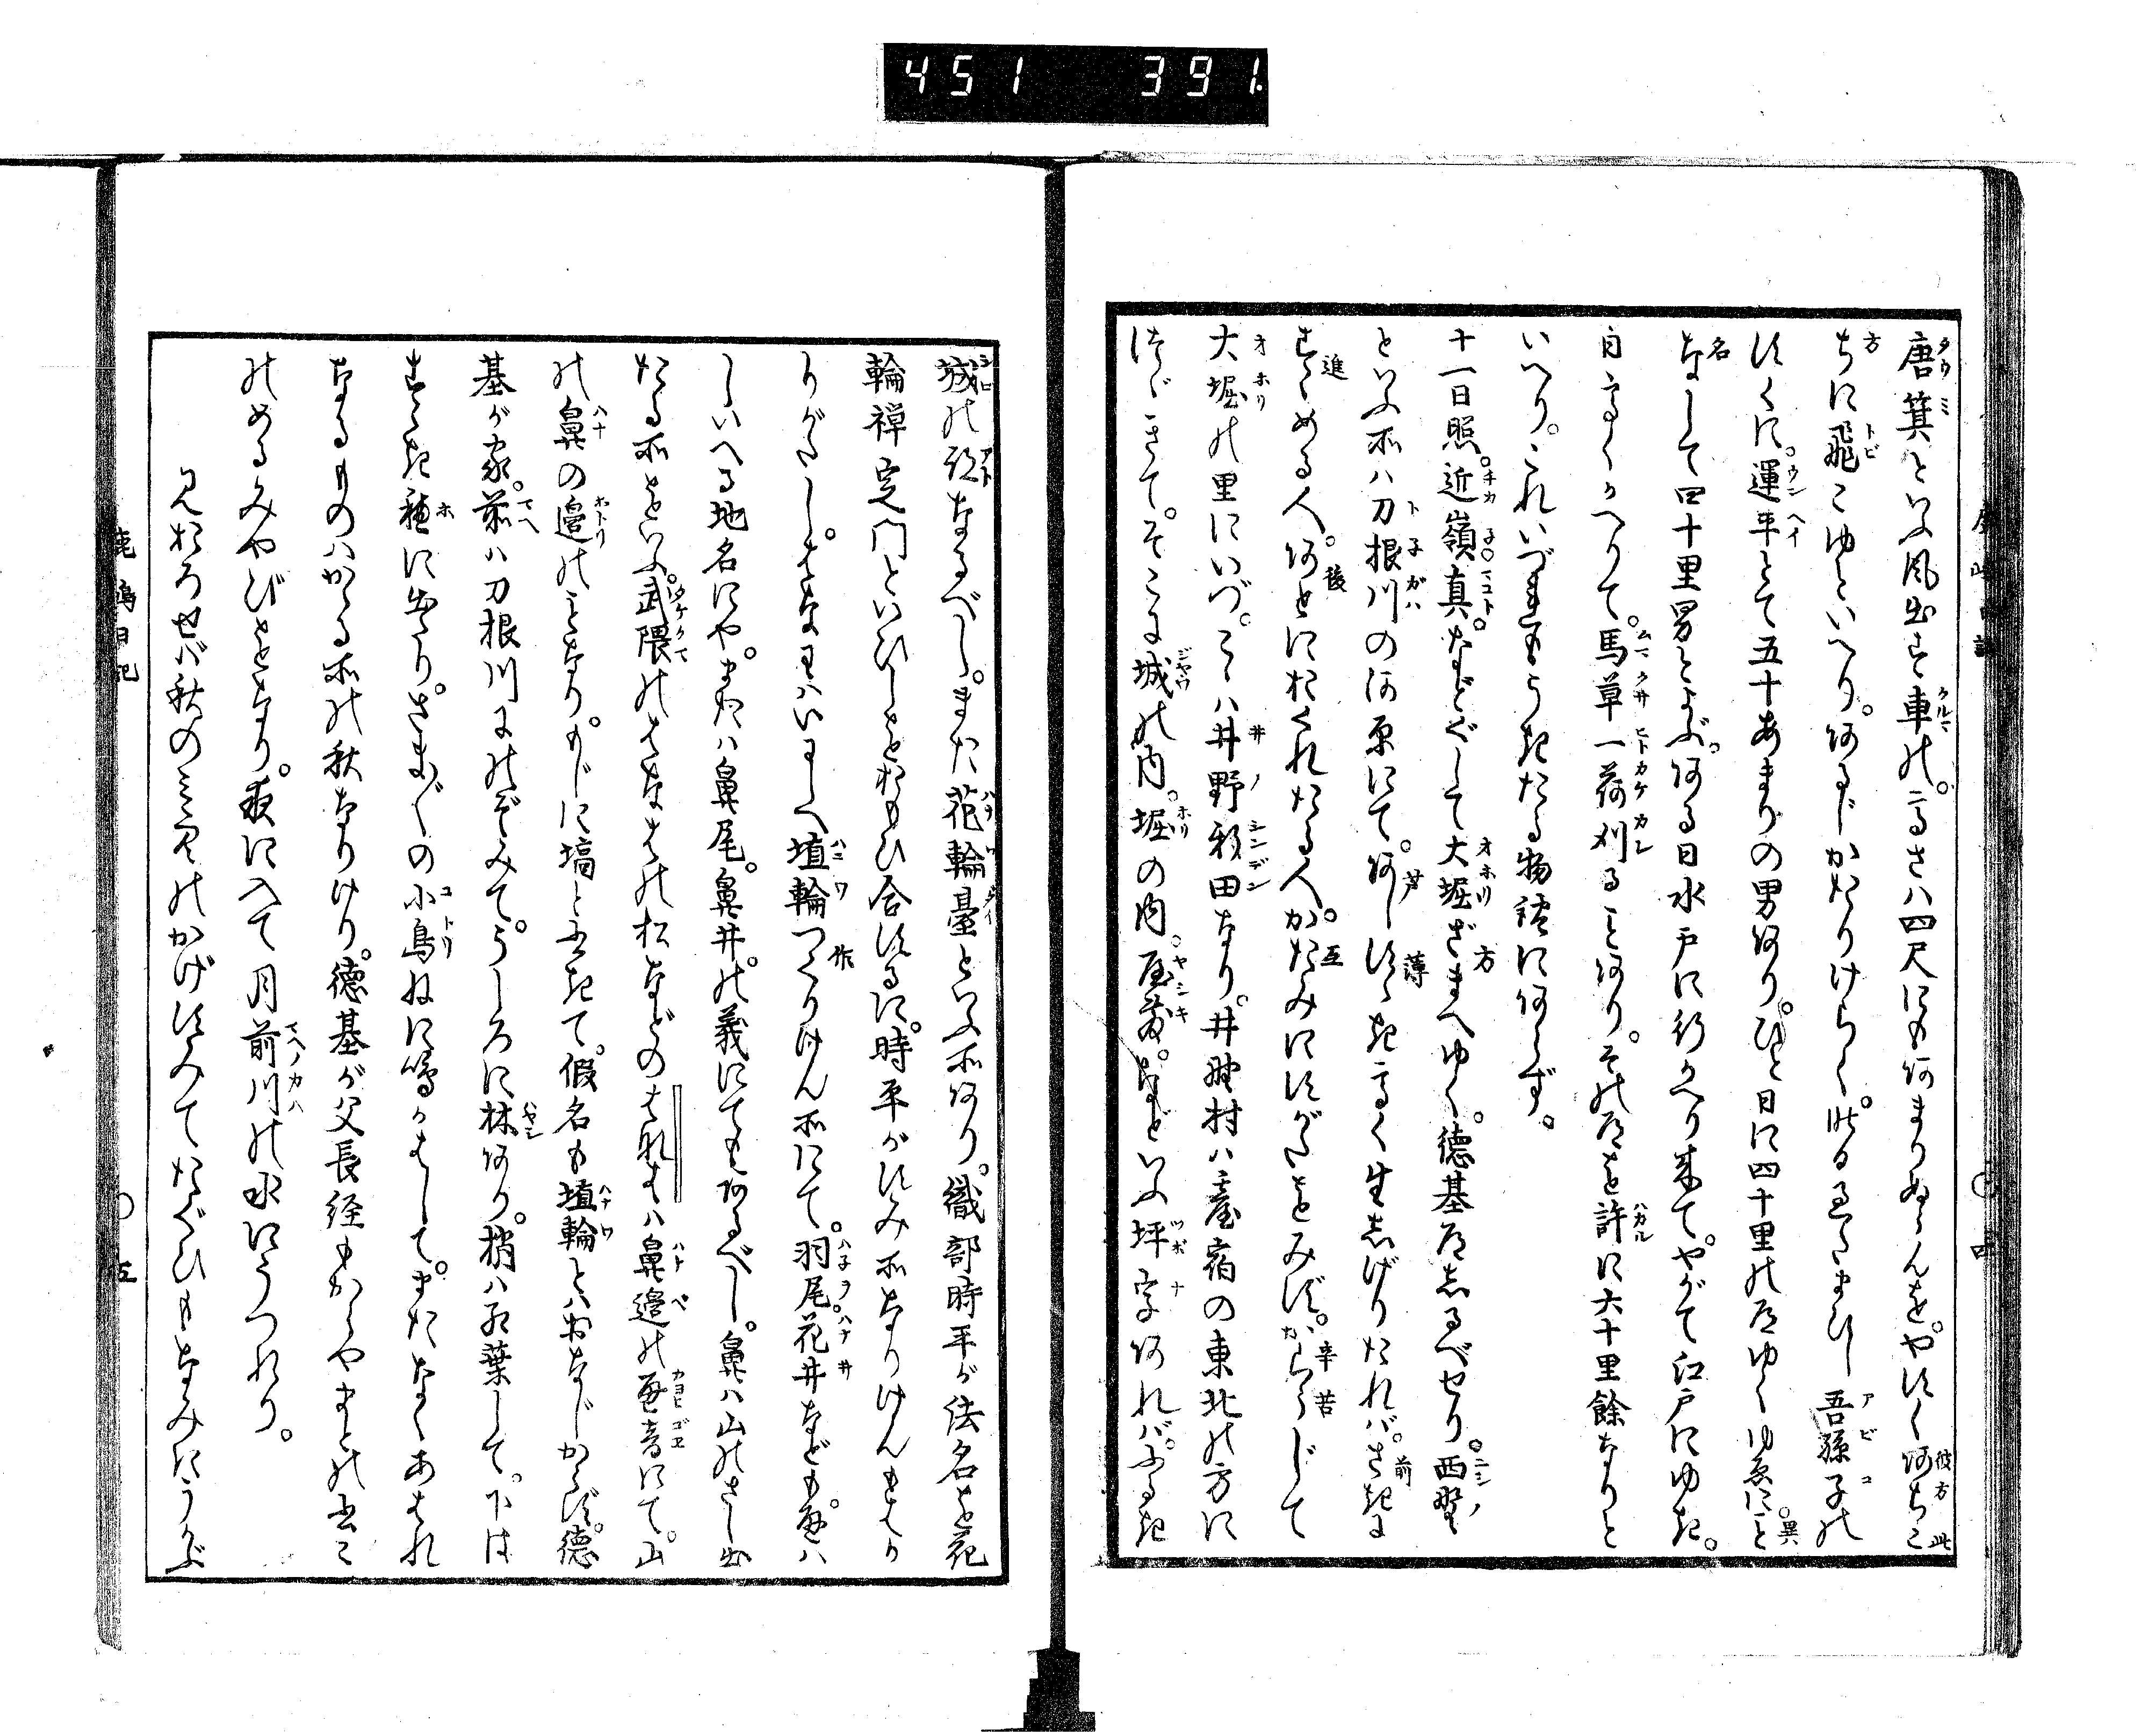 451 391.
唐箕といふ風出す車の。高さは四尺にもあまりぬらんを。やすくあちこ
ちに飛こゆといへり。あるじかたりけらく。此るゐたまひし吾孫子の
すくに。運平とて五十あまりの男あり。ひと日に四十里の道ゆくゆゑに。こと
なして四十里男とよぶ。ある日水戸に行かへり来て。やがて江戸にゆき。
自高くかへりて。馬草一荷刈ることあり。その道を許に六十里餘なりと
いへり。これいづれもうきたる物語にあらず。
十一日照。近嶺真。などぐして大堀ざまへゆく。徳基道しるべせり。西野
といふ所ハ刀根川の河原にて。あしすゝき高く生しげりたれバ。さきに
すゝめる人。あとにおくれたる人。かたみにすがたをみず。からうじて
大堀の里にいづ。こゝハ井野新田なり。井野村ハ臺宿の東北の方に
つゞきて。そこに城の内。堀の内。屋敷。などいふ坪字あれバ。ふるき
鹿嶋日記
城の跡なるべし。また花輪臺といふ所あり。織部時平が法名を花
輪禅定門といひしとおもひ合するに。時平がすみ所なりけんもはか
りがたし。はなわハいにしへ埴輪つくりけん所にて。羽尾花井なども。色ハ
しいへる地名にや。またハ鼻尾。鼻井。の義にてもあるべし。鼻ハ山のさし出
たる所をいふ。武隈のはなはの松などのはなはハ鼻邉の通音にて。山
の鼻の邉のことなり。もじに塙と書きて。假名も埴輪とハおなじからず。徳
基が家。前ハ刀根川にのぞみて。うしろに林あり。梢ハ紅葉して。下は
すゝき穂に出たり。さまざまの小鳥ねに鳴かはして。またなくあはれ
なるものハかゝる所の秋なりけり。徳基が父長經もからやまとの書こ
のめるみやびとなり。夜に入て月前川の水にうつれり。
見おろせバ秋のみそらのかげすみてたぐひもなみにうかぶ
鹿嶋日記
五